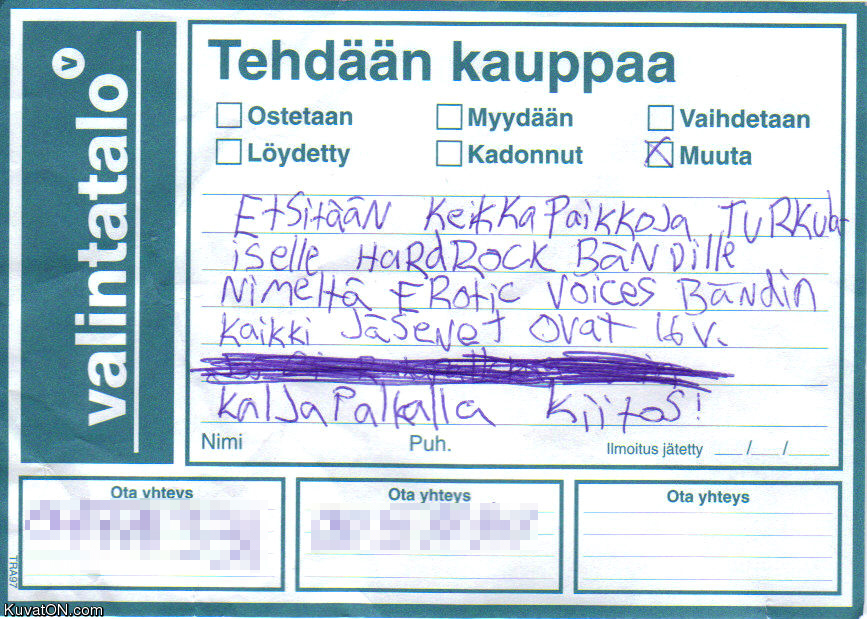 valintatalo
v
Tehdään kauppaa
Ostetaan Myydään Vaihdetaan
Löydetty Kadonnut Muuta
Etsitään keikkapaikkoja Turkula
iselle Hardrock Bändille
Nimeltä Erotic Voices Bändin
kaikki Jäsenet ovat 16 v.
kaljapalkalla kiitos!
Nimi Puh. Ilmoitus jätetty __/__/__
Ota yhteys Ota yhteys Ota yhteys
TRA97
KuvatON.com